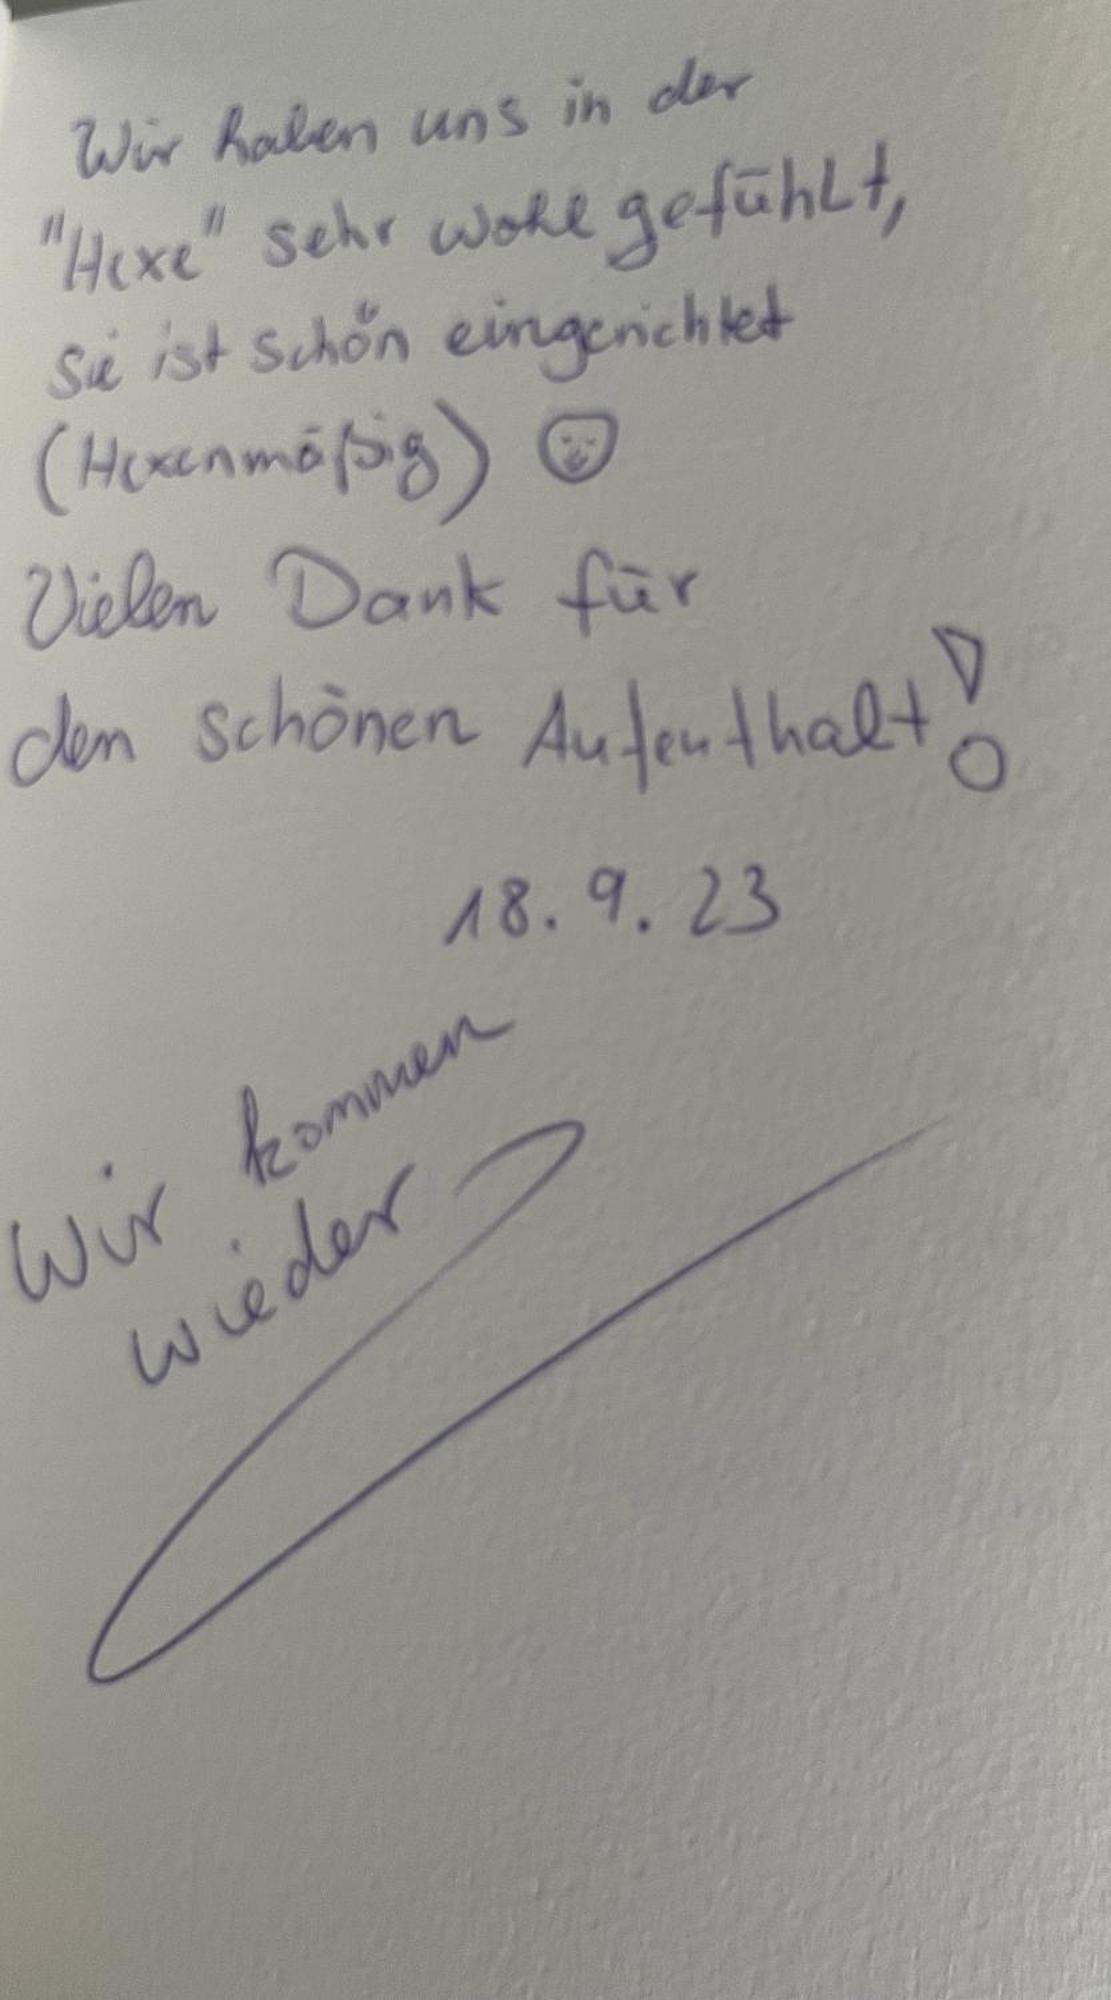 Wir haben uns in der
"Hexe" sehr wohl gefühlt,
sie ist schön eingerichtet
(Hexenmäßig)
Vielen Dank für
den schönen Aufenthalt!
18.9.23
Wir kommen
wieder